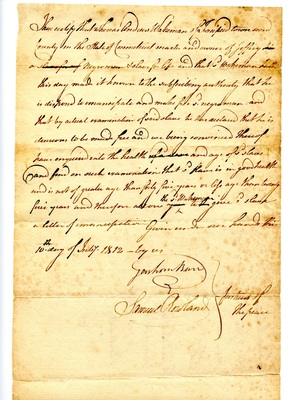 Then certify that whereas Andrew Wakeman of Fairfield town and
County in the State of Connecticut master and owner of
a negro man slave for life and that sd Wakeman hath
this day made it known to the subscribing authority that he
is disposed to emancipate and make free sd negro man and
that by actual examination of said slave he declared that he is
desirous to be made free and we being convinced thereof
have enquired into the health and age of sd slave
and find on such examination that sd slave is in good health
and is not of greater age than forty five years or less age than twenty
five years and therefore the sd Wakeman to give sd slave
a letter of emancipation Given under our hands this
10th day of July 1812 by us
Samuel Rowland
Justices of
the peace